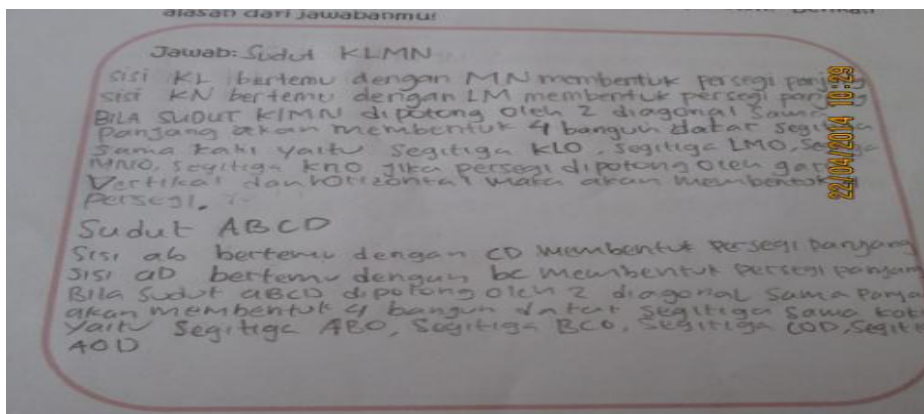 alasan dari jawabanmu!
Jawab: Sudut KLMN
sisi KL bertemu dengan MN membentuk persegi panjang
sisi KN bertemu dengan LM membentuk persegi panjang
BILA SUDUT KlMN dipotong oleh 2 diagonal sama
Panjang akan membentuk 4 bangun datar segitiga
sama kaki yaitu segitiga KLO, segitiga LMO,
MNO, segitiga kno jika persegi dipotong oleh
Vertikal dan horizontal maka akan membentuk
Persegi.
Sudut ABCD
Sisi ab bertemu dengan CD membentuk persegi panjang
Sisi aD bertemu dengan bc membentuk persegi panjan
Bila Sudut aBCD dipotong oleh 2 diagonal sama Panja
akan membentuk 4 bangun datar segitiga sama kak
yaitu segitiga ABO, Segitiga BCO, segitiga COD, Segiti
AOD
22/04/2014 10:29